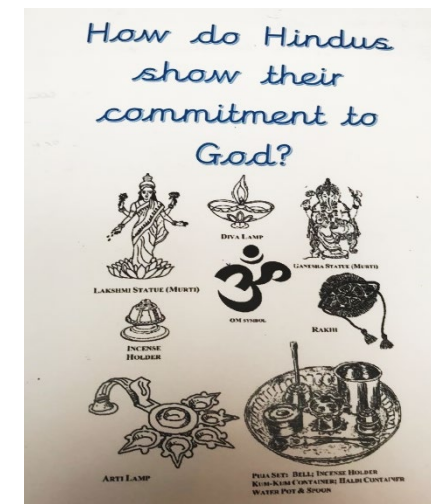 How do Hindus
show their
commitment to
God?
DIVA LAMP
LAKSHMI STATUE (MURTI)
GANESHA STATUE (MURTI)
OM SYMBOL
RAKHI
INCENSE
HOLDER
ARTI LAMP
PUJA SET: BELL; INCENSE HOLDER
KUM-KUM CONTAINER; HALDI CONTAINER
WATER POT & SPOON